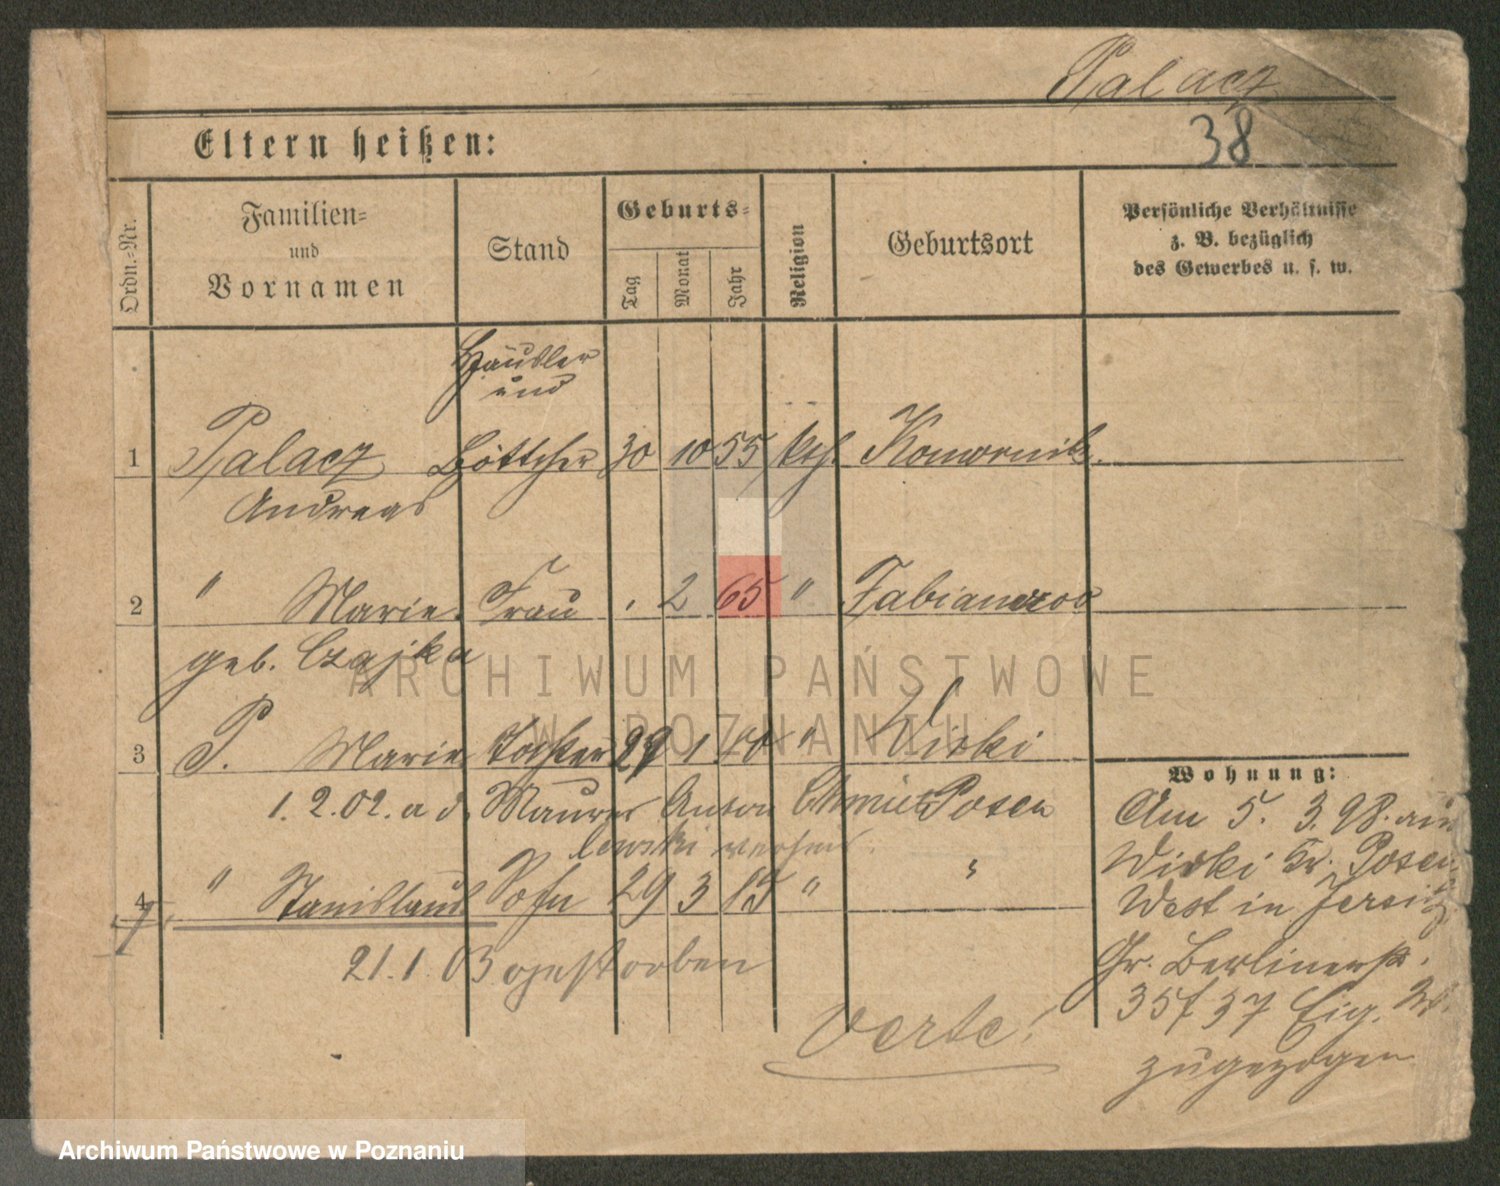 Palacz
38
Eltern heißen:
Ordn.-Nr.
Familien-
und
Vornamen
Stand
Geburts-
Tag
Monat
Jahr
Religion
Geburtsort
Persönliche Verhältnisse
z. B. bezüglich
des Gewerbes u. s. w.
Häusler
und
1 Palacz Böttcher 30 10 55 kth. Komornik.
Andreas
2 " Marie Frau . 2 65 " Fabianowo
geb. Czajka
3 P. Marie Tochter 29 1 " Wirki
Wohnung:
1. 2. 02. a d. Maurer Anton Posen
lewski
4 " Stanislaus Sohn 29 3 85 " "
21. 1. 03 gestorben
Verte!
Am 5. 3. 98. aus
Wirki Kr. Posen
West in Jersitz
Gr. Berlinerstr.
35/37 Eig. W.
zugezogen
ARCHIWUM PAŃSTWOWE
W POZNANIU
Archiwum Państwowe w Poznaniu